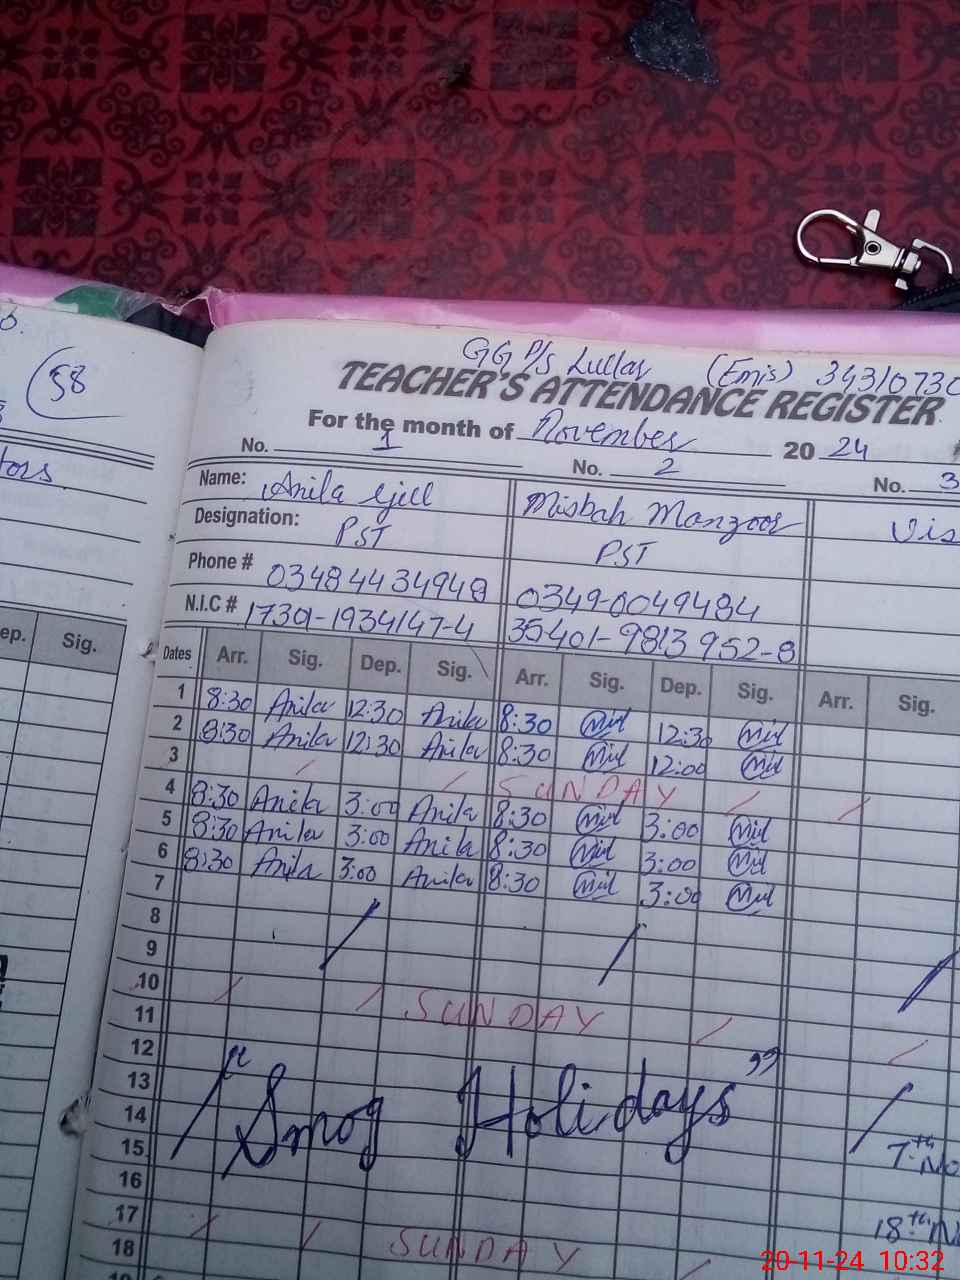 58
GG P/S Lullar (Emis) 34310730
TEACHER'S ATTENDANCE REGISTER
For the month of November 2024
No. 1 No. 2 No. 3
Name: Anila Gill Misbah Manzoor Vis
Designation: PST PST
Phone # 0349-0049484
N.I.C # 17301-1934147-4 35401-9813952-8
ep. Sig. Dates Arr. Sig. Dep. Sig. Arr. Sig. Dep. Sig. Arr. Sig.
1 8:30 Anila 12:30 Anila 8:30 12:30
2 8:30 Anila 12:30 Anila 8:30 12:00
3 SUNDAY
4 8:30 Anila 3:00 Anila 8:30 3:00
5 8:30 Anila 3:00 Anila 8:30 3:00
6 8:30 Anila 3:00 Anila 8:30 3:00
7
8
9
10 SUNDAY
11
12
13 "Smog Holidays"
14
15 7th No
16
17 SUNDAY 18th N
18
20-11-24 10:32